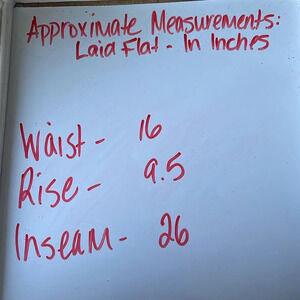 Approximate Measurements:
Laid Flat - In Inches
Waist - 16
Rise - 9.5
Inseam - 26